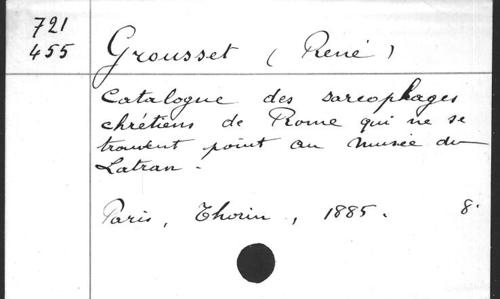 721
455
Grousset (René)
Catalogue des sarcophages
chrétiens de Rome qui ne se
trouvent point au Musée du
Latran.
Paris, Thorin, 1885. 8.